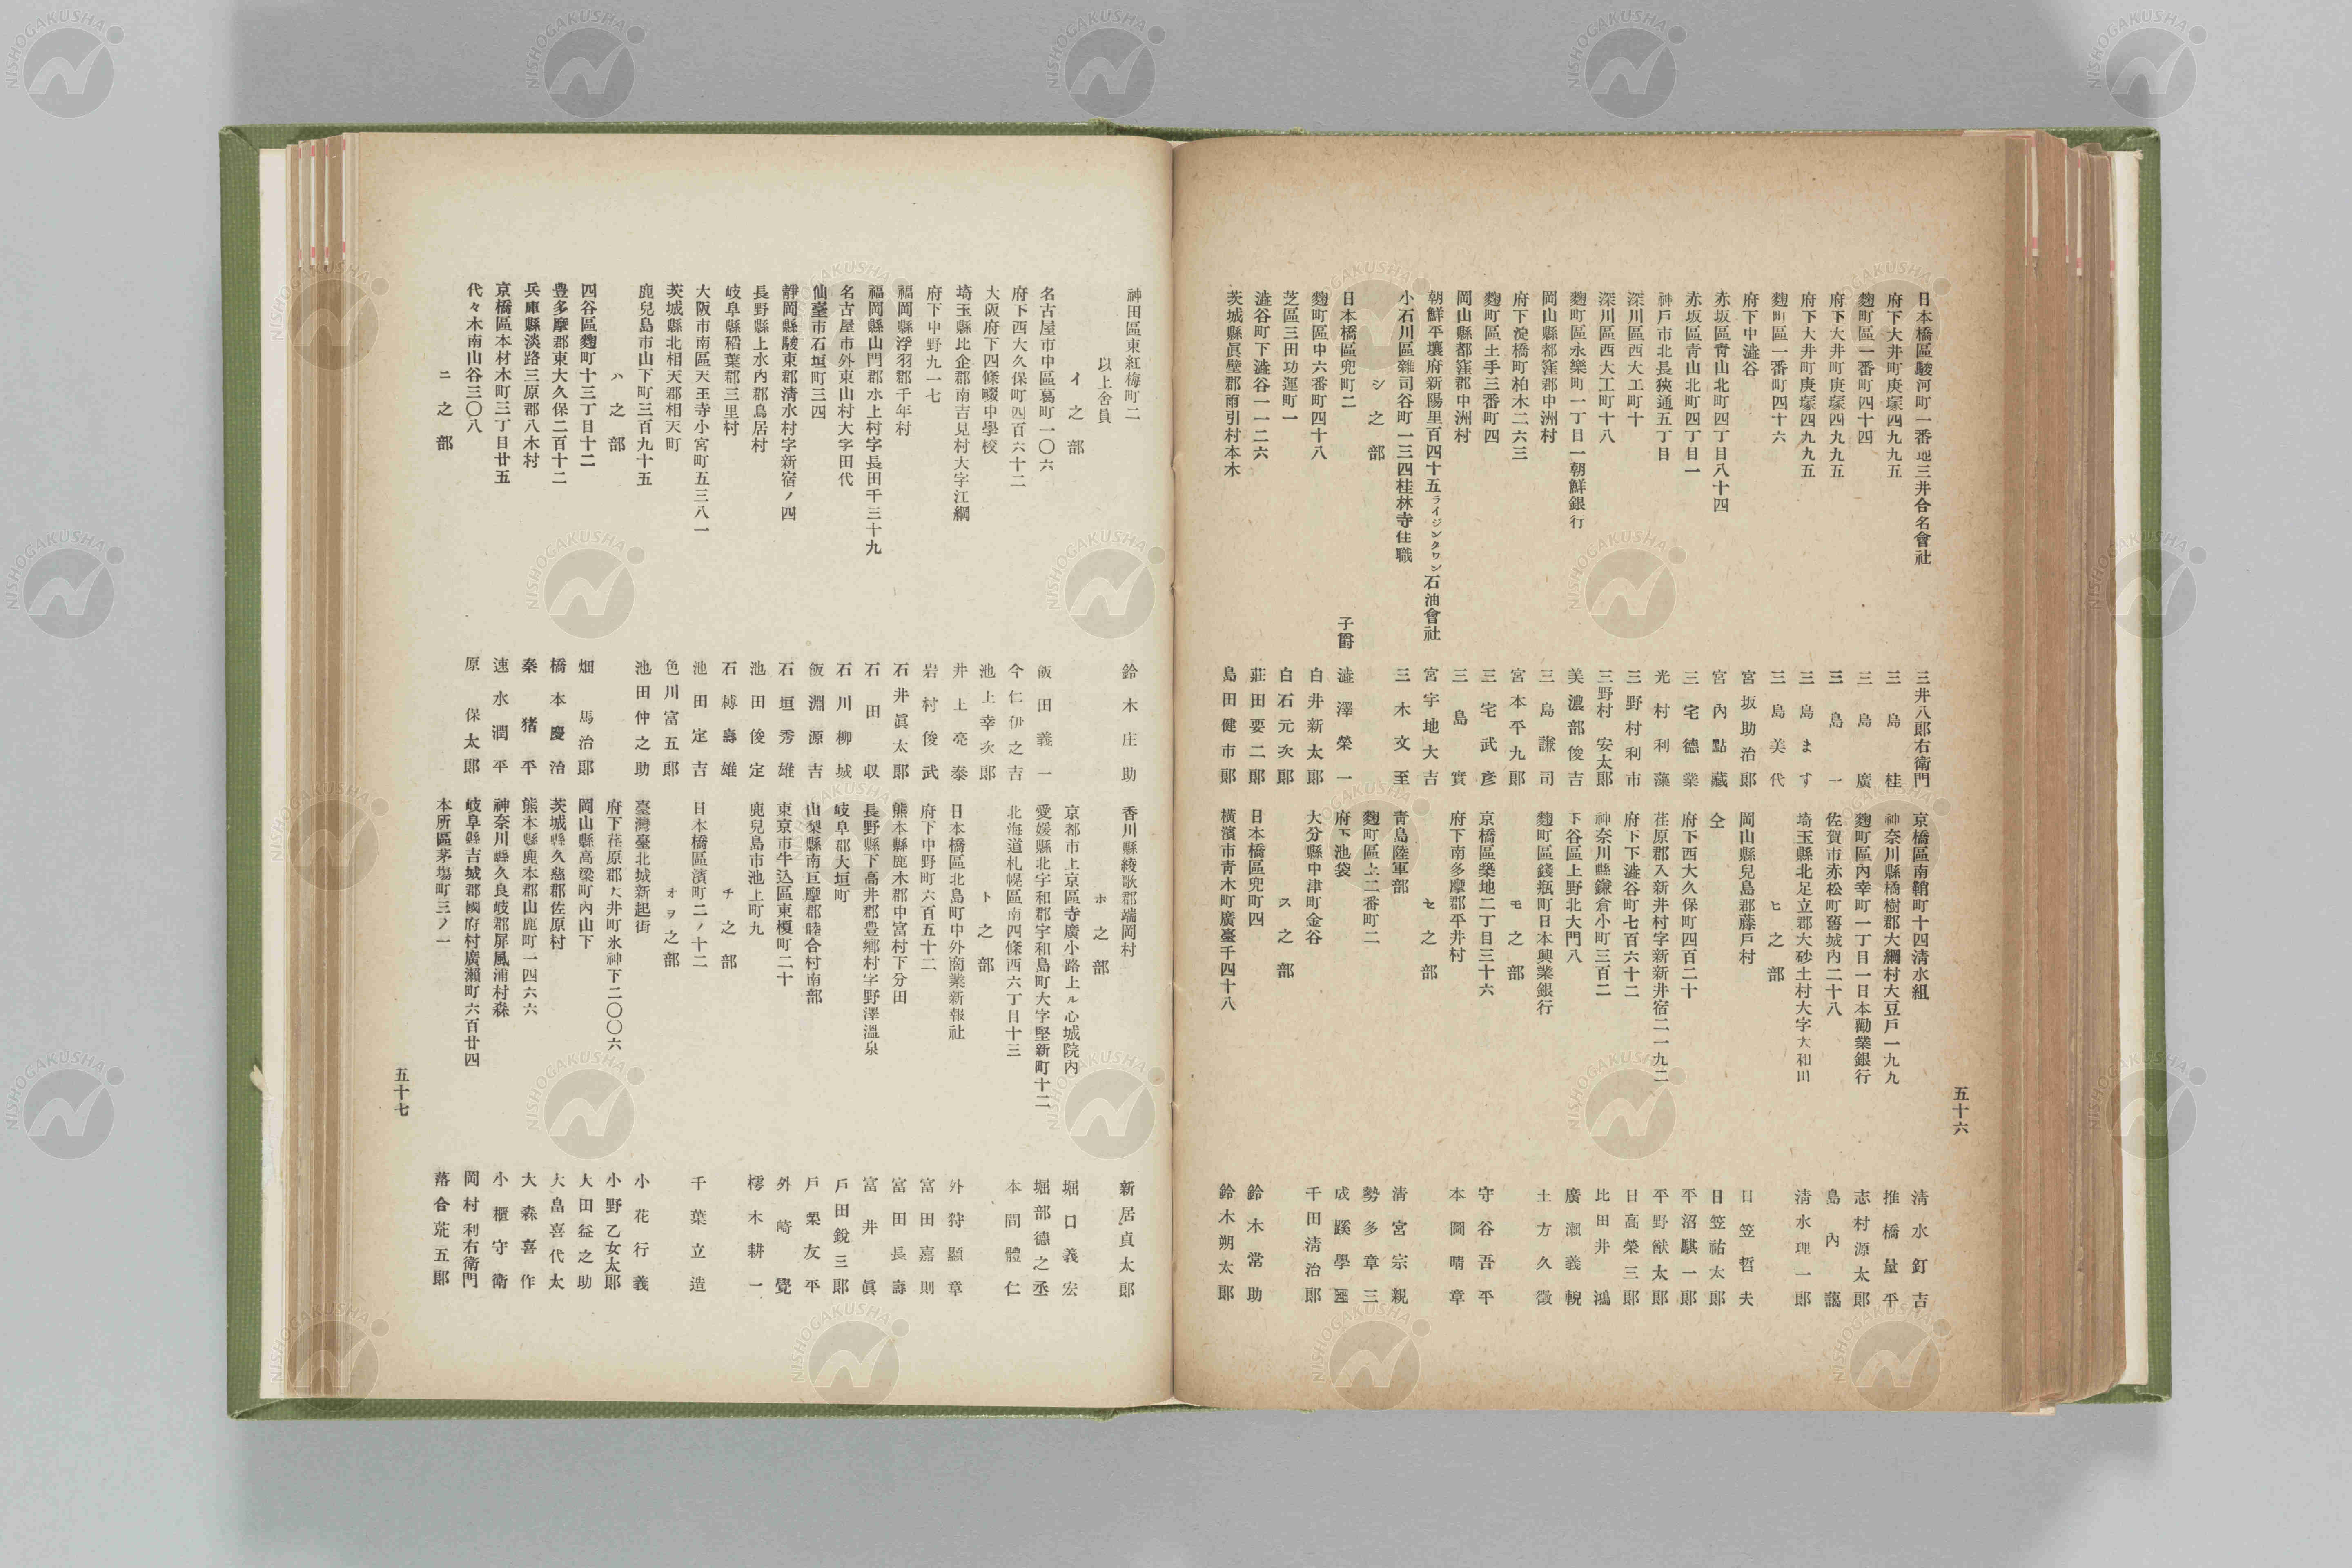 五十六
日本橋區駿河町一番地三井合名會社 三井八郎右衛門
府下大井町庚塚四九九五 三島桂
麴町區一番町四十四 三島廣
府下大井町庚塚四九九五 三島一
府下大井町庚塚四九九五 三島ます
麴町區一番町四十六 三島美代
府下中澁谷 宮坂助治郎
赤坂區靑山北町四丁目八十四 宮內點藏
赤坂區靑山北町四丁目一 三宅德業
神戸市北長狹通五丁目 光村利藻
深川區西大工町十 三野村利市
深川區西大工町十八 三野村安太郎
麴町區永樂町一丁目一朝鮮銀行 美濃部俊吉
岡山縣都窪郡中洲村 三島謙司
府下淀橋町柏木二六三 宮本平九郎
麴町區土手三番町四 三宅武彥
岡山縣都窪郡中洲村 三島實
朝鮮平壤府新陽里百四十五ライジンタワン石油會社 宮宇地大吉
小石川區雜司谷町一三四桂林寺住職 三木文至
シ之部
日本橋區兜町二 子爵 澁澤榮一
麴町區中六番町四十八 白井新太郎
芝區三田功運町一 白石元次郎
澁谷町下澁谷一一二六 莊田要二郎
茨城縣眞壁郡雨引村本木 島田健市郎
京橋區南鞘町十四淸水組 淸水釘吉
神奈川縣橘樹郡大綱村大豆戸一九九 推橋量平
麴町區內幸町一丁目一日本勸業銀行 志村源太郎
佐賀市赤松町舊城內二十八 島內譪
埼玉縣北足立郡大砂土村大字大和田 淸水理一郎
ヒ之部
岡山縣兒島郡藤戸村 日笠哲夫
仝 日笠祐太郎
府下西大久保町四百二十 平沼騏一郎
荏原郡入新井村字新新井宿二一九二 平野猷太郎
府下下澁谷町七百六十二 日高榮三郎
神奈川縣鎌倉小町三百二 比田井鴻
下谷區上野北大門八 廣瀨義輗
麴町區錢瓶町日本興業銀行 土方久徵
モ之部
京橋區築地二丁目三十六 守谷吾平
府下南多摩郡平井村 本圖晴章
セ之部
靑島陸軍部 淸宮宗親
麴町區上二番町二 勢多章三
府下池袋 成蹊學園
大分縣中津町金谷 千田淸治郎
ス之部
日本橋區兜町四 鈴木常助
橫濱市靑木町廣臺千四十八 鈴木朔太郎
神田區東紅梅町二 鈴木庄助
以上舍員
イ之部
名古屋市中區葛町一〇六 飯田義一
府下西大久保町四百六十二 今仁伊之吉
大阪府下四條畷中學校 池上幸次郎
埼玉縣比企郡南吉見村大字江綱 井上亮泰
府下中野九一七 岩村俊武
福岡縣浮羽郡千年村 石井眞太郎
福岡縣山門郡水上村字長田千三十九 石田収
名古屋市外東山村大字田代 石川柳城
仙臺市石垣町三四 飯淵源吉
靜岡縣駿東郡淸水村字新宿ノ四 石垣秀雄
長野縣上水內郡鳥居村 池田俊定
岐阜縣稻葉郡三里村 石榑壽雄
大阪市南區天王寺小宮町五三八一 池田定吉
茨城縣北相天郡相天町 色川富五郎
鹿兒島市山下町三百九十五 池田仲之助
ハ之部
四谷區麴町十三丁目十二 畑馬治郎
豊多摩郡東大久保二百十二 橋本慶治
兵庫縣淡路三原郡八木村 秦猪平
京橋區本材木町三丁目廿五 速水潤平
代々木南山谷三〇八 原保太郎
ニ之部
香川縣綾歌郡端岡村 新居貞太郎
ホ之部
京都市上京區寺廣小路上ル心城院內 堀口義宏
愛媛縣北宇和郡宇和島町大字堅新町十二 堀部德之丞
北海道札幌區南四條西六丁目十三 本間體仁
ト之部
日本橋區北島町中外商業新報社 外狩顯章
府下中野町六百五十二 富田嘉則
熊本縣鹿木郡中富村下分田 富田長壽
長野縣下高井郡豊鄕村字野澤溫泉 富井眞
岐阜郡大垣町 戸田銳三郎
山梨縣南巨摩郡睦合村南部 戸栗友平
東京市牛込區東榎町二十 外崎覺
鹿兒島市池上町九 樗木耕一
チ之部
日本橋區濱町二ノ十二 千葉立造
オヲ之部
臺灣臺北城新起街 小花行義
府下荏原郡大井町氷神下二〇〇六 小野乙女太郎
岡山縣高梁町內山下 大田益之助
茨城縣久慈郡佐原村 大畠喜代太
熊本縣鹿本郡山鹿町一四六六 大森喜作
神奈川縣久良岐郡屏風浦村森 小櫃守衛
岐阜縣吉城郡國府村廣瀨町六百廿四 岡村利右衛門
本所區茅塲町三ノ一 落合荒五郎
五十七
NISHOGAKUSHA